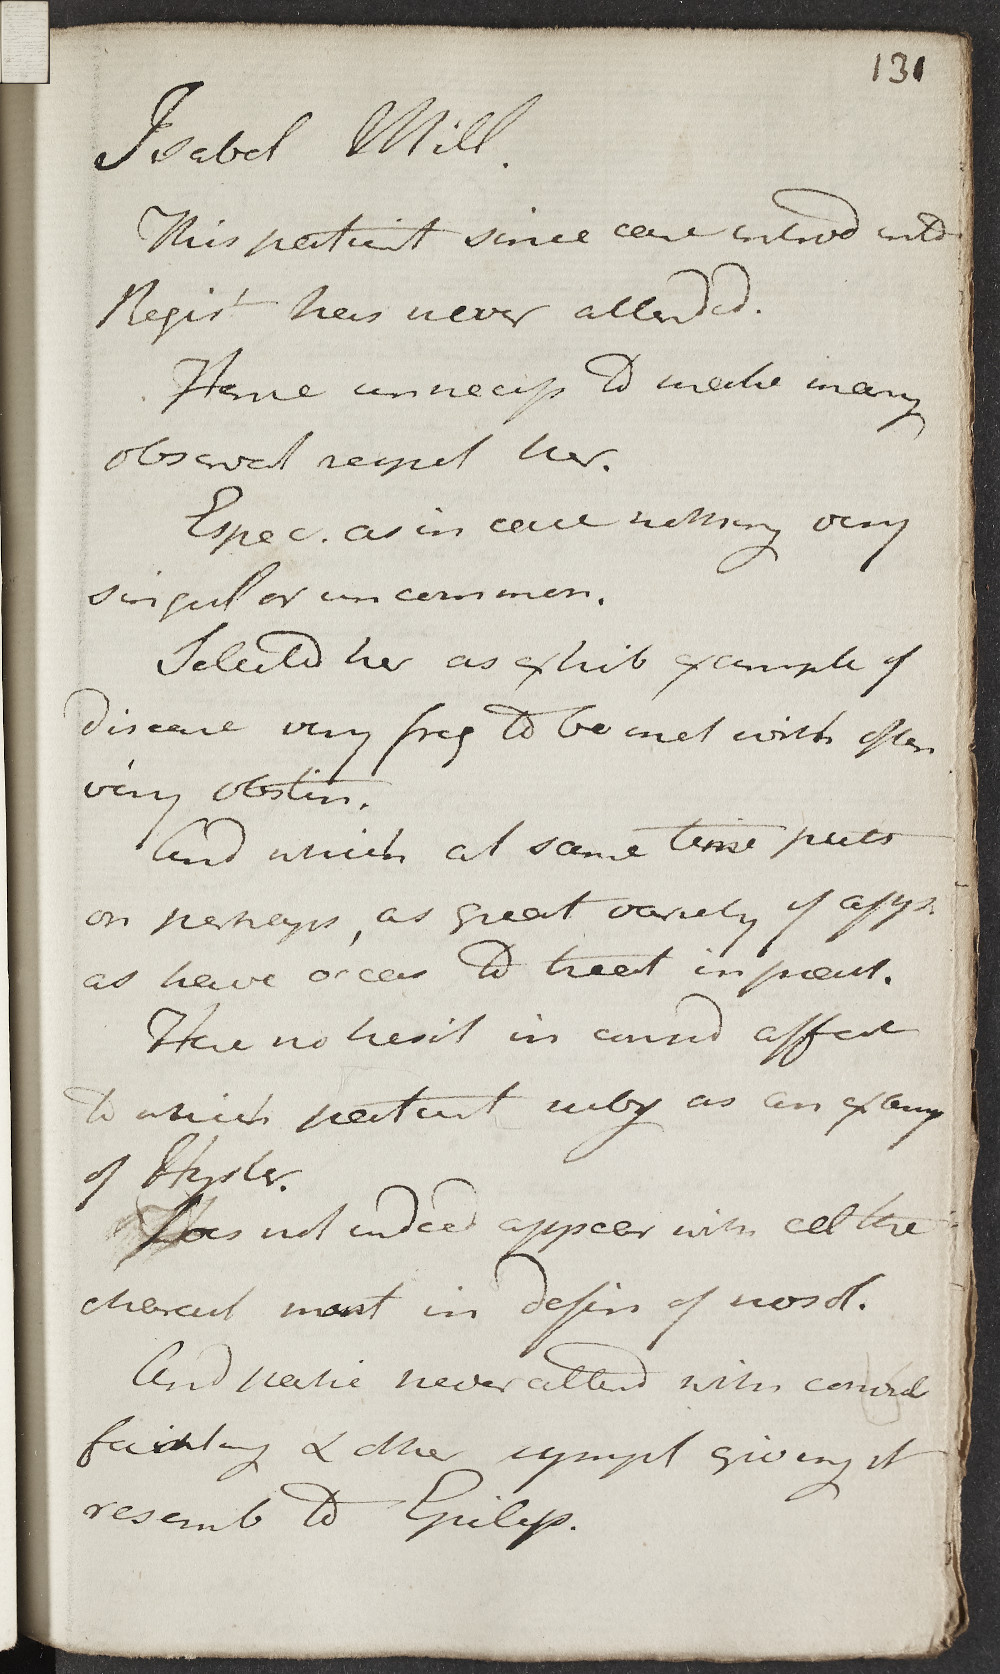 131
Isabel Mill.
This patient since case introd into
Regist has never attended.
Hence unnecess to make many
observat respect her.
Espec. as in case nothing very
singul or uncommon.
Selected her as exhib example of
disease very freq to be met with often
very obstin.
And which at same time puts
on perhaps, as great variety of app.
as have occas to treat in pract.
Have no hesit in consid affect
to which patient subj as an examp
of Hyster.
Does not indeed appear with all the
charact mark in defin of nosol.
And patie never attend with convul
fainting & other sympt giving it
resemb to Epilep.